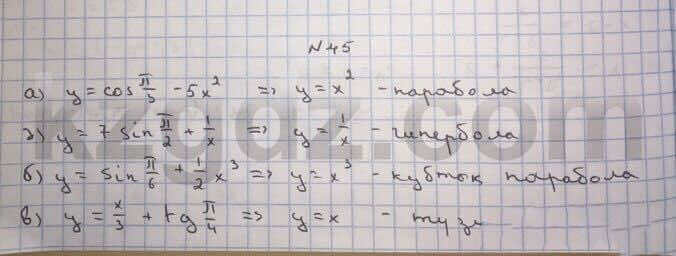 N45
а) y = cos π/5 - 5x² => y = x² - парабола
г) y = 7 sin π/2 + 1/x => y = 1/x - гипербола
б) y = sin π/6 + 1/2 x³ => y = x³ - кубтық парабола
в) y = x/3 + tg π/4 => y = x - түзу
kzgdz.com